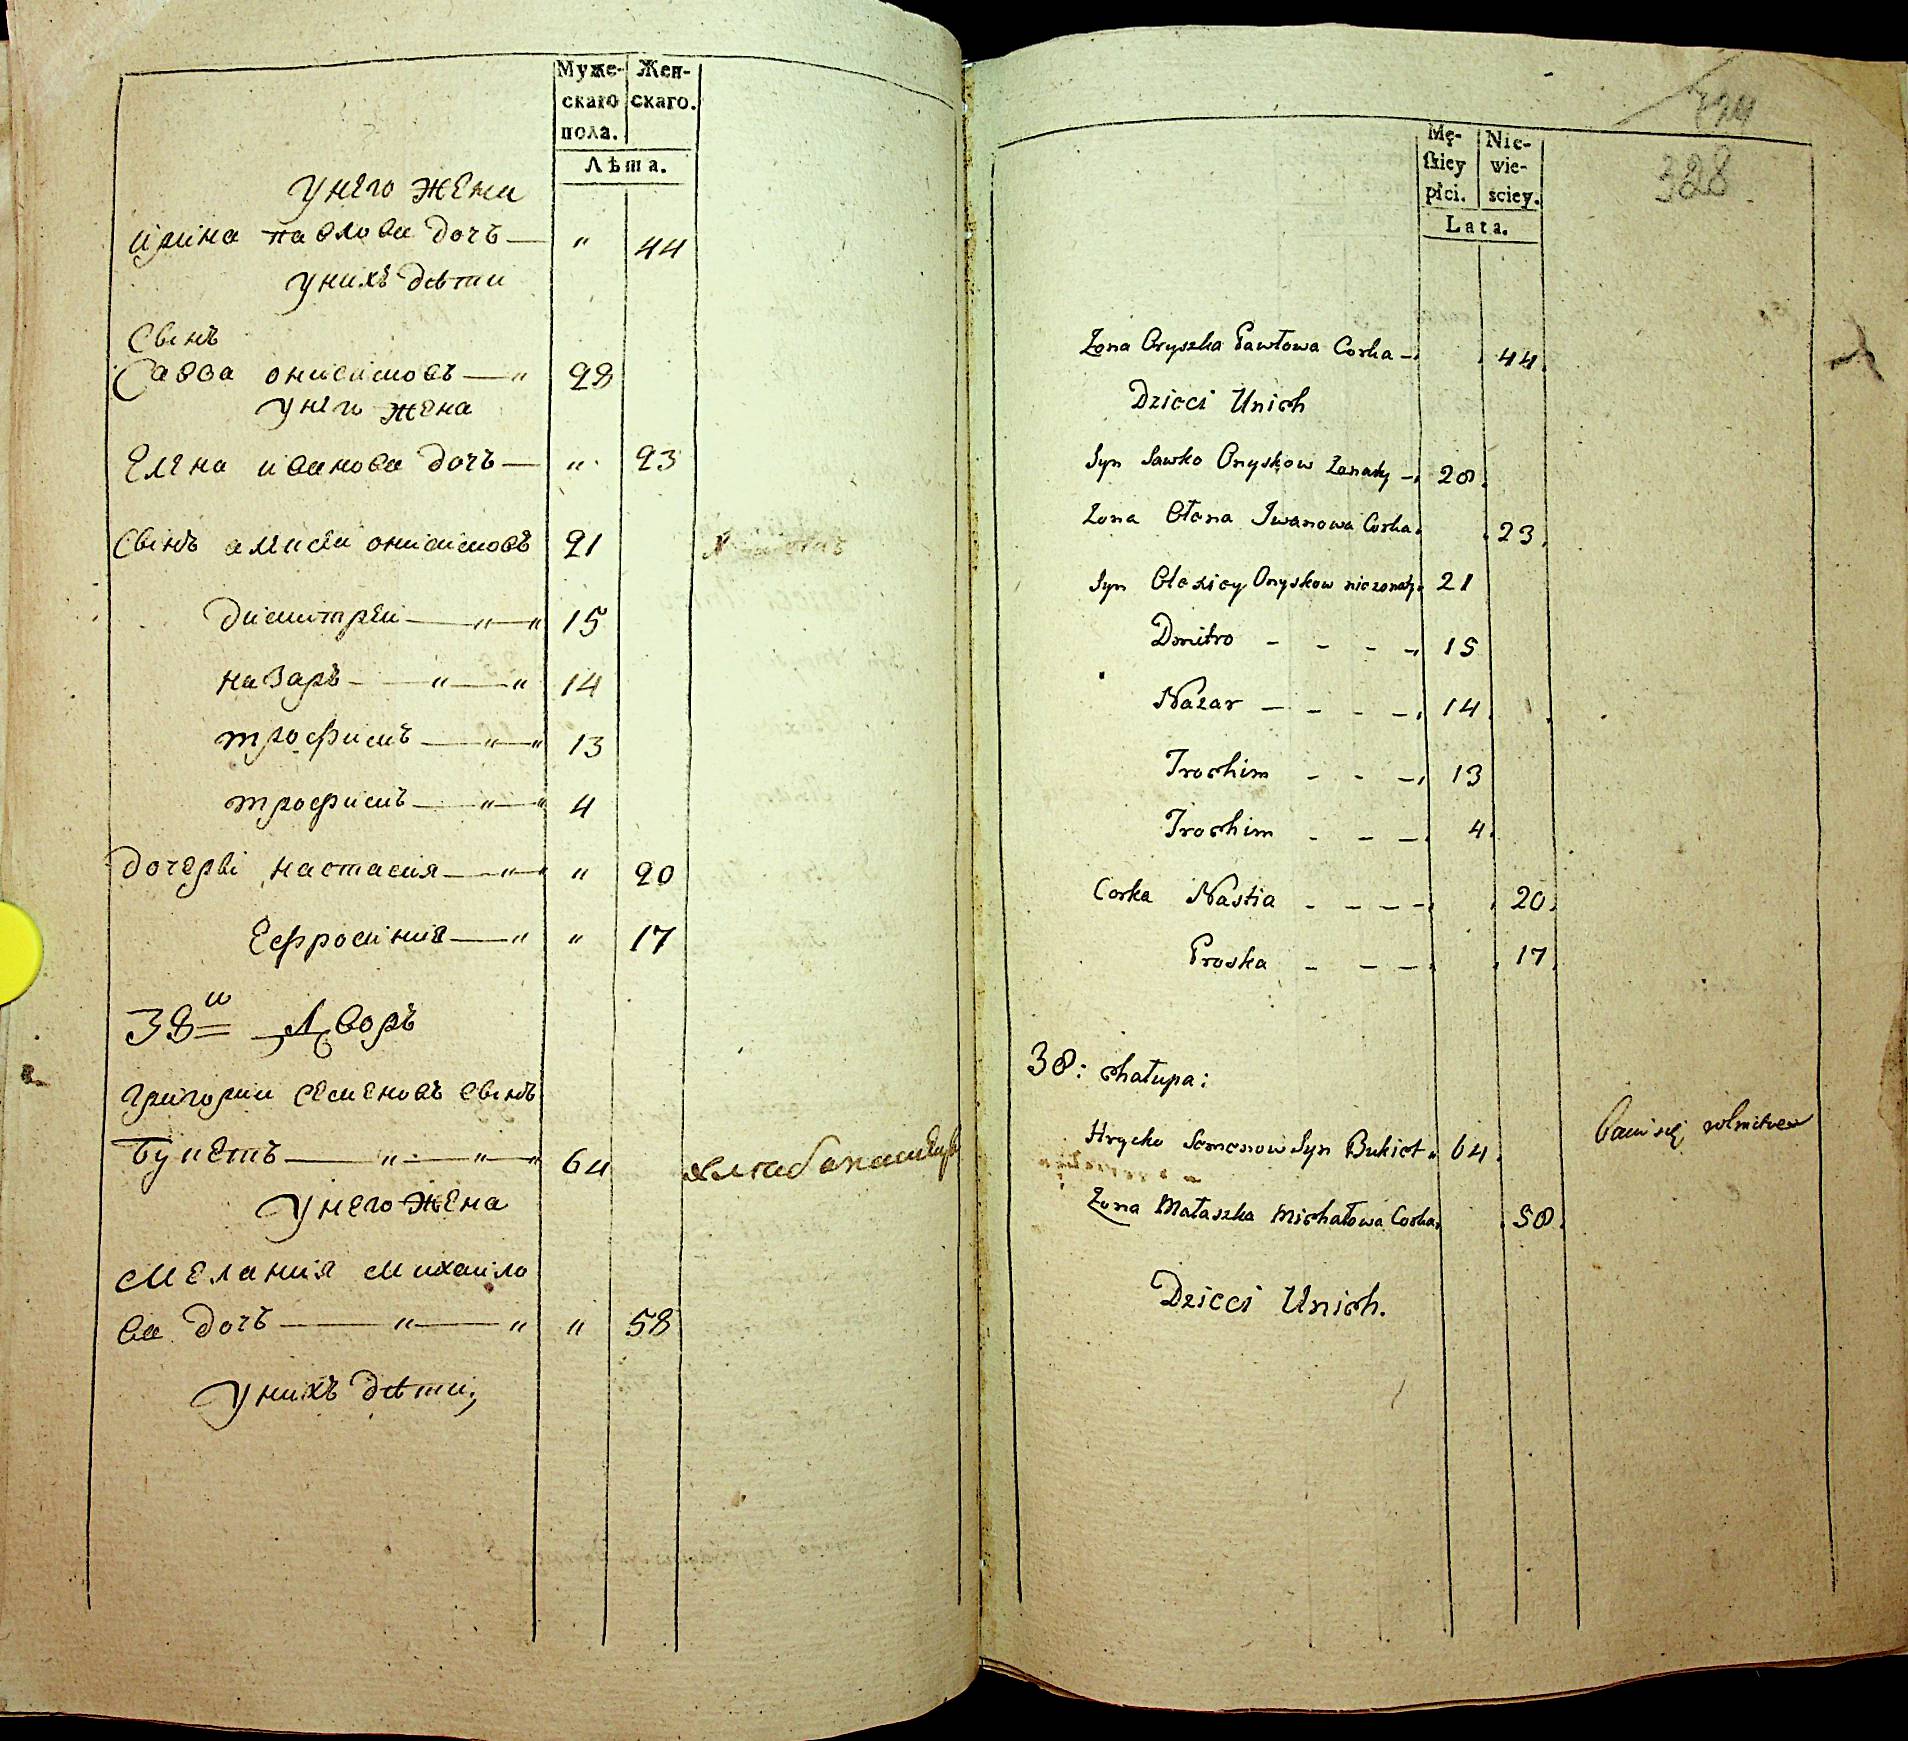 Муже-
скаго
пола.
Жен-
скаго.
Лѣта.
у него жена
ирина павлова дочъ — " 44
у нихъ дѣти
Сынъ
Савва онисимовъ — " 28
у него жена
Елена иванова дочъ — " 23
Сынъ алексѣи онисимовъ 21
димитрѣи — " — " 15
назаръ — " — " 14
трофимъ — " — " 13
трофимъ — " — " 4
дочерѣи настасия — " — " " 20
Ефросиния — " " 17
38и Дворъ
григории семеновъ сынъ
Букетъ — " — " — " 64
у него жена
мелания михаило
ва дочъ — " — " " 58
у нихъ дѣти,
324
328
Mę-
skiey
płci.
Nie-
wie-
sciey.
Lata.
Zona Oryszka Pawłowa Corka – 44.
Dzieci Unich
Syn Sawko Onyskow Zonaty – 28.
Zona Ołena Iwanowa Corka. 23.
Syn Olexiey Onyskow niezonaty. 21
Dmitro – – – – 15
Nazar – – – – 14.
Trochim – – – 13
Trochim – – – 4.
Corka Nastia – – – – 20.
Proska – – – 17.
38: chałupa:
Hrycko Semenow Syn Bukiet. 64. bawi się rolnictwem
Zona Małaszka Michałowa Corka. 58.
Dzieci Unich.